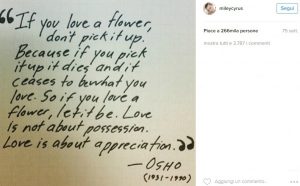 "If you love a flower,
don't pick it up.
Because if you pick
it up it dies and it
ceases to be what you
love. So if you love a
flower, let it be. Love
is not about possession.
Love is about appreciation."
— OSHO
(1931-1990)
mileycyrus
Segui
Piace a 266mila persone
75 sett.
mostra tutti e 3.197 i commenti
Aggiungi un commento...